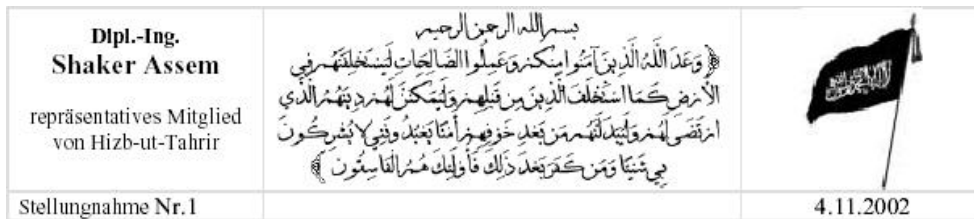 Dipl.-Ing.
Shaker Assem
repräsentatives Mitglied
von Hizb-ut-Tahrir
بسم الله الرحمن الرحيم
﴿ وَعَدَ اللَّهُ الَّذِينَ آمَنُوا مِنكُمْ وَعَمِلُوا الصَّالِحَاتِ لَيَسْتَخْلِفَنَّهُمْ فِي
الْأَرْضِ كَمَا اسْتَخْلَفَ الَّذِينَ مِن قَبْلِهِمْ وَلَيُمَكِّنَنَّ لَهُمْ دِينَهُمُ الَّذِي
ارْتَضَى لَهُمْ وَلَيُبَدِّلَنَّهُم مِّن بَعْدِ خَوْفِهِمْ أَمْنًا يَعْبُدُونَنِي لَا يُشْرِكُونَ
بِي شَيْئًا وَمَن كَفَرَ بَعْدَ ذَلِكَ فَأُولَئِكَ هُمُ الْفَاسِقُونَ ﴾
Stellungnahme Nr.1
4.11.2002